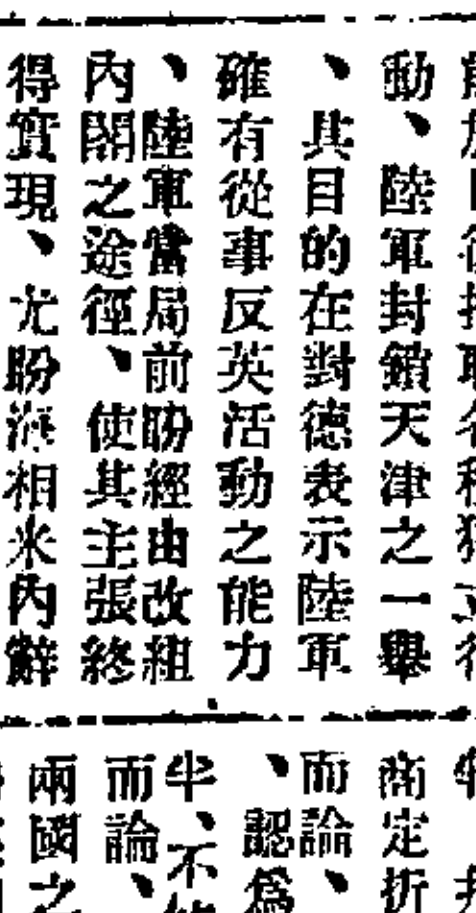 動、陸軍封鎖天津之一舉
、其目的在對德表示陸軍
確有從事反英活動之能力
、陸軍當局前盼經由改組
內閣之途徑、使其主張終
得實現、尤盼海相米內辭
商定折
而論、
、認為
半、不
而論、
兩國之